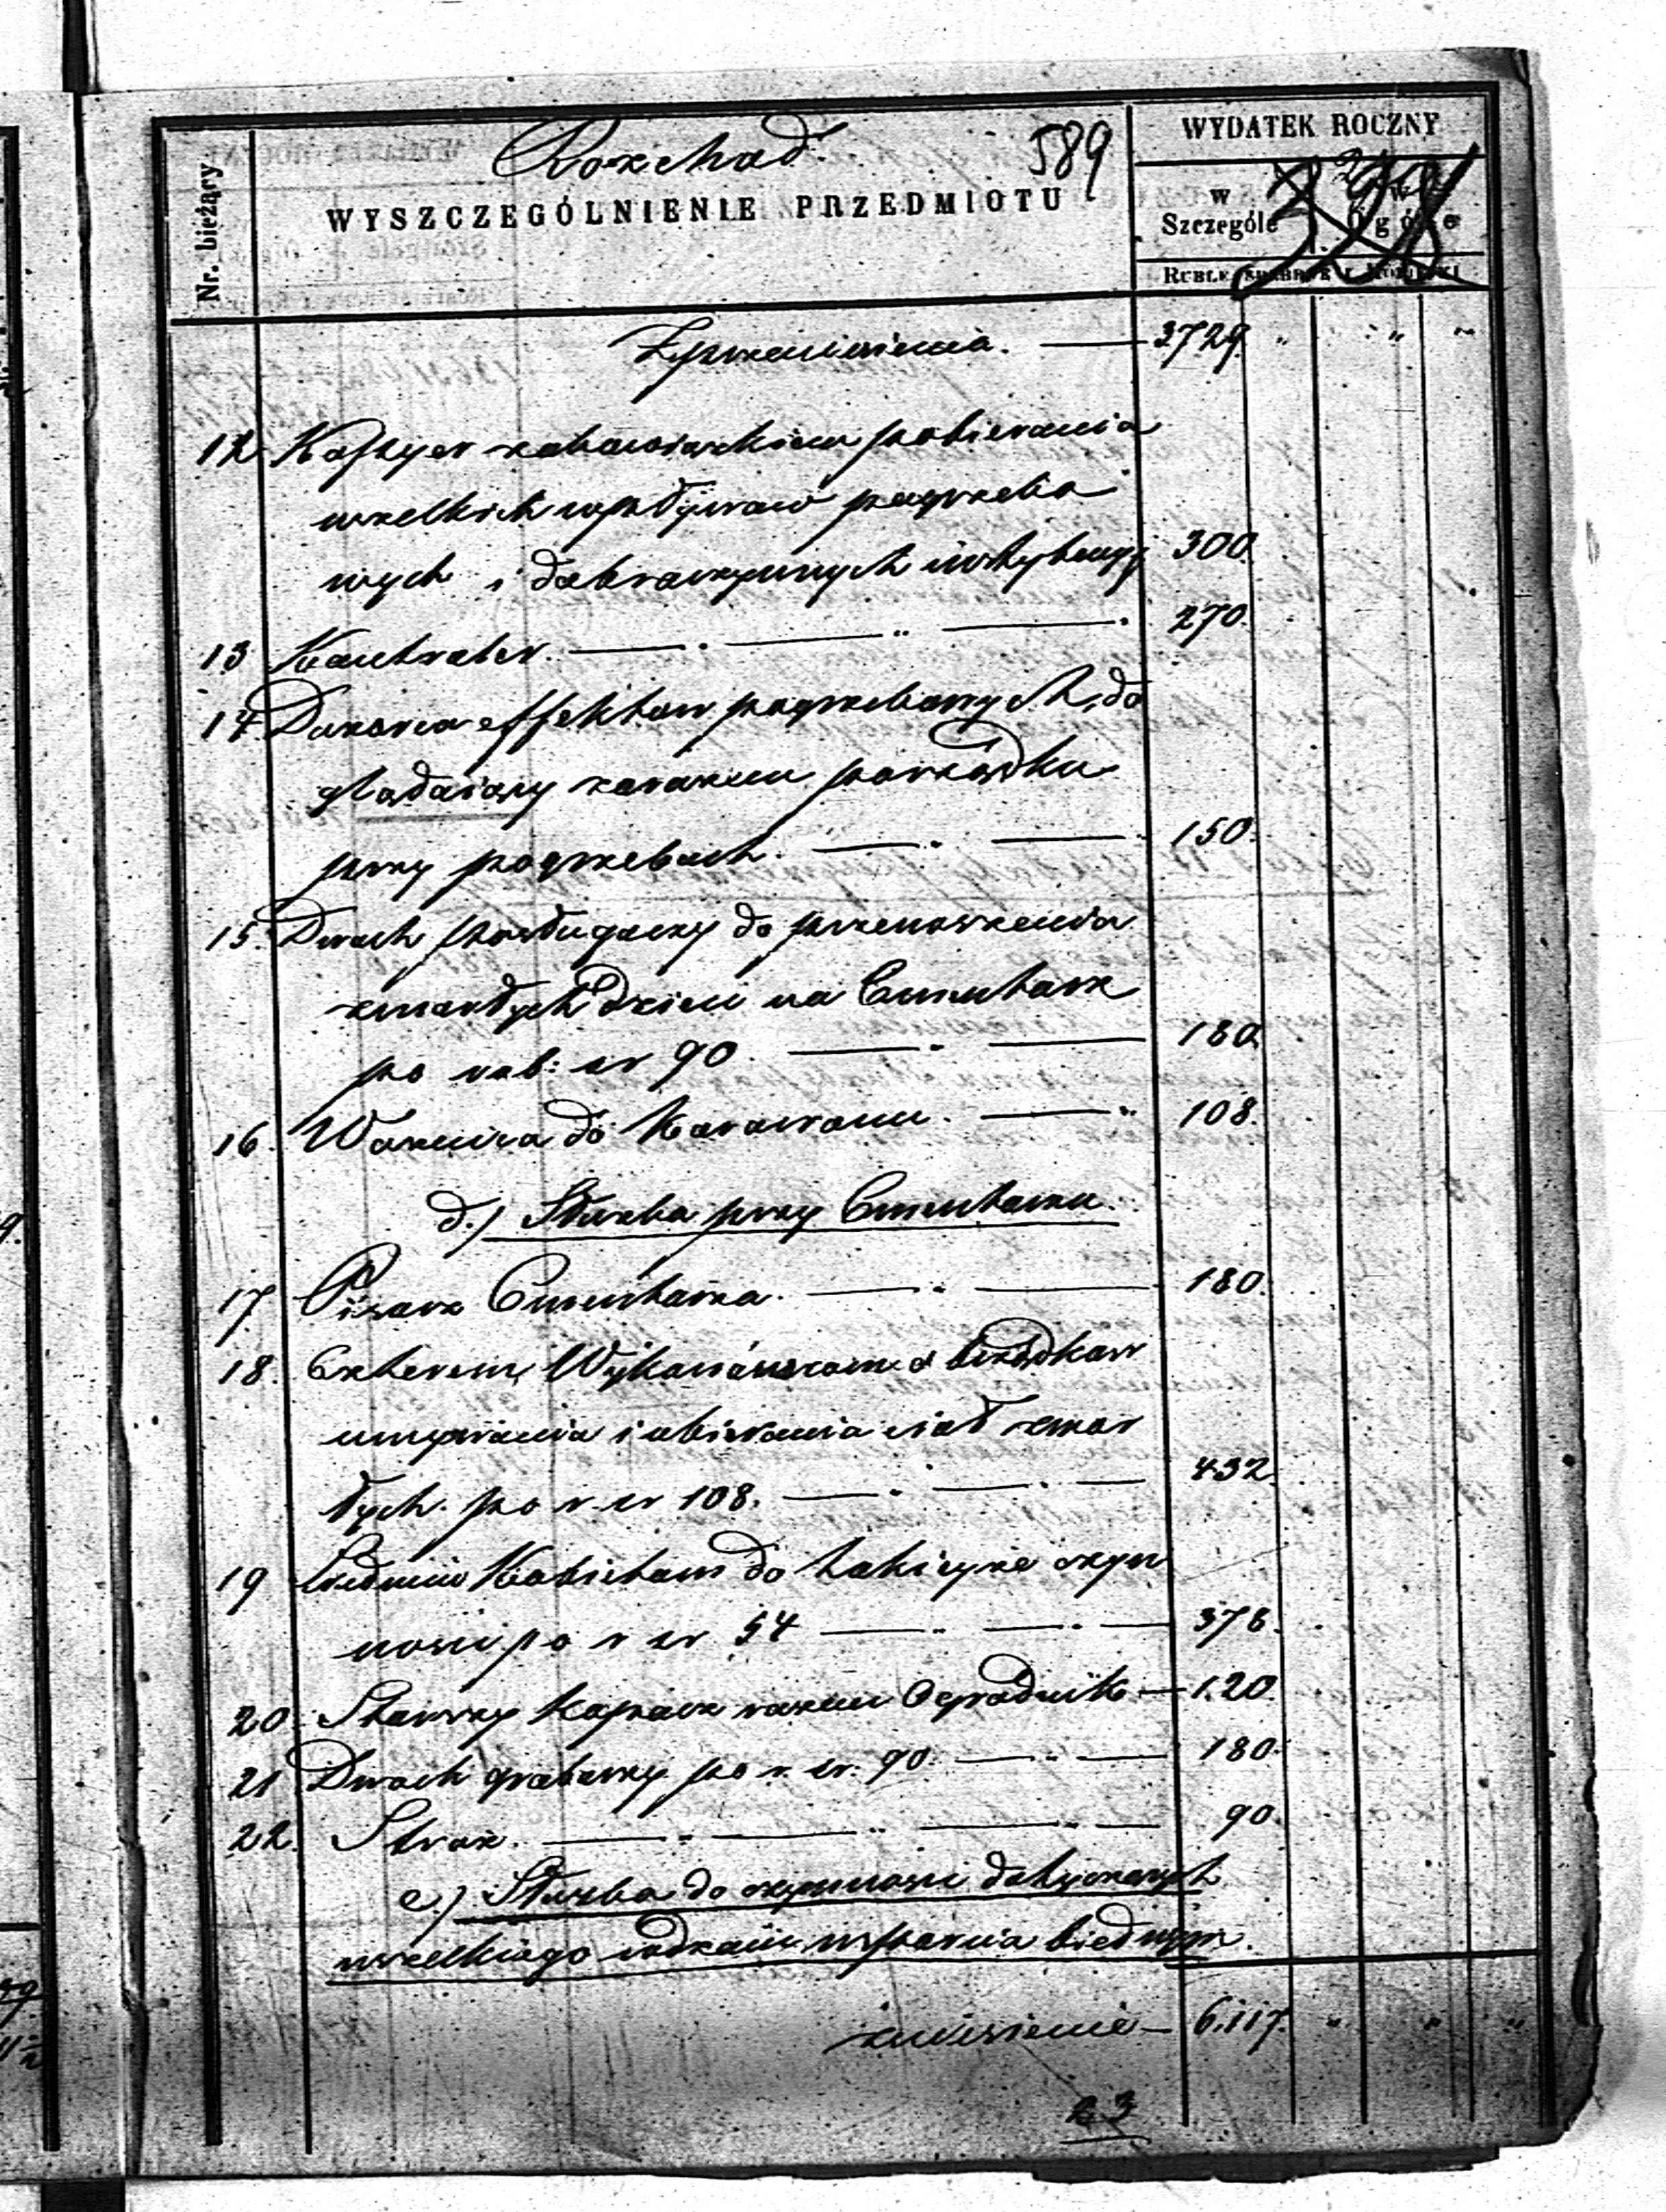 Rozchod. 589
WYDATEK ROCZNY
Nr. bieżący
WYSZCZEGÓLNIENIE PRZEDMIOTU
w Szczególe
w Ogóle
RUBLE SREBREM I KOPIEJKI
Z przeniesienia. — 3729 " " "
12 Kassyer z obowiązkiem pobierania
wszelkich wpływow pogrzebo
wych i dobroczynnych instytucyj 300.
13 Kontroler. — . — " — . 270.
14. Dozorca effektow pogrzebowych, do
glądaiący zarazem porządku
przy pogrzebach. — . — 150.
15. Dwoch posługaczy do przenoszenia
zmarłych dzieci na Cmentarz
po rub: sr 90. — . — 180.
16. Woznica do Karawanu. — " 108.
d.) Służba przy Cmentarzu.
17. Pisarz Cmentarza. — . — 180.
18. Czterem Wykonawcom obrządkow
umywania i ubierania ciał zmar
łych. po r. sr 108. — . — . — 432.
19 Siedmiu Kobietom do takieyże czyn
nosci po r sr 54 — . — . — 378.
20. Starszy Kopacz razem Ogrodnik — 120.
21 Dwoch grabarzy po r. sr. 90. — . — 180.
22. Stroz. — . — " — . — 90.
e.) Służba do czynnosci dotyczących
wszelkiego rodzaiu wsparcia biednym.
zniesienie — 6.117. " " "
23